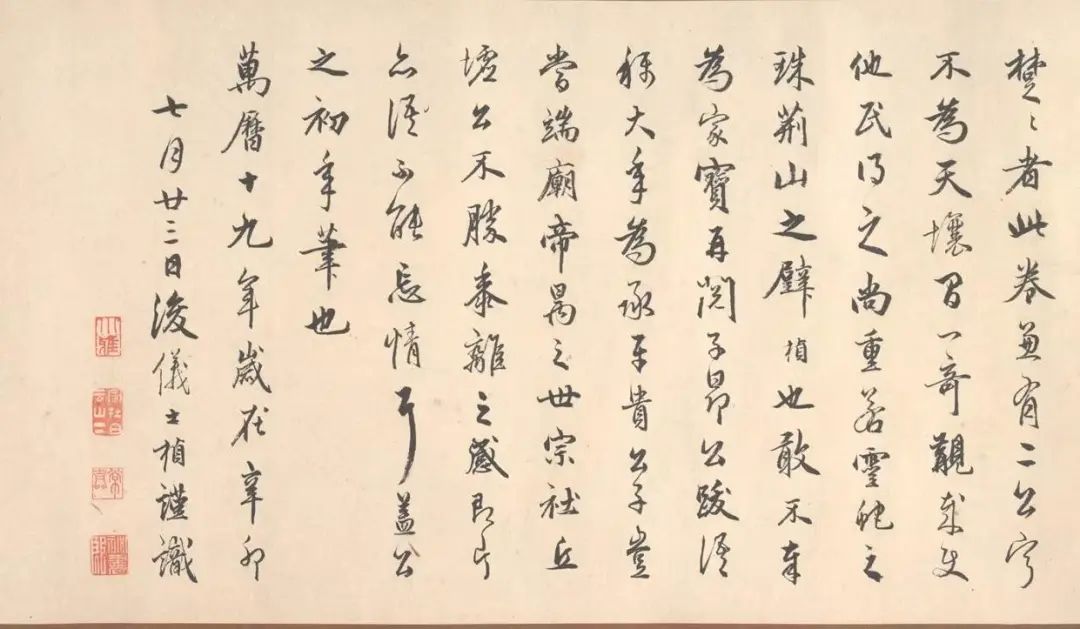 楚〻者此卷兼有二公字
不為天壤間一奇觀乎使
他氏得之尚重若靈蛇之
珠荊山之璧楨也敢不奉
為家寶再閱子昂公跋語
稱大年為承平貴公子豈
嘗端廟帝昺之世宗社丘
墟公不勝黍離之感即片
言語不能忘情耳蓋公
之初年筆也
萬曆十九年歲在辛卯
七月廿三日浚儀士楨謹識